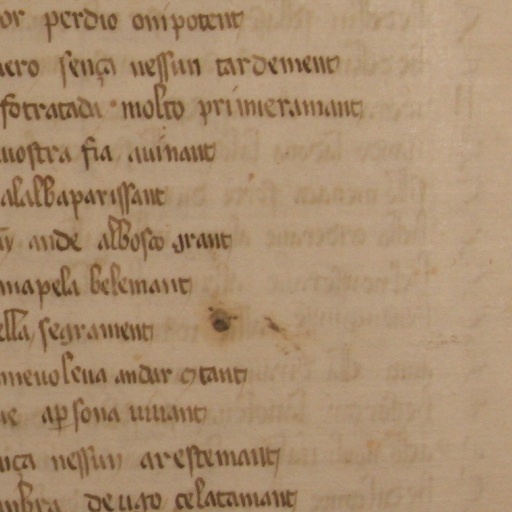 or perdio onipotent
ero sença nessun tardement
fo tratada molto primieramant
uostra fia auinant
al alba parissant
ande al bosco grant
ma pela belemant
ella segrament
me uoleua andar 9tant
ap̱sona uiuant
ça nessun arestemant
nbra de ugo celatamant